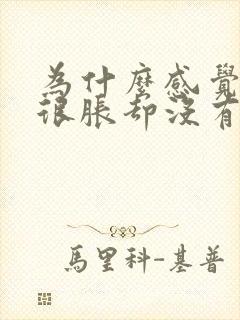 為什麼感覺
很脹卻沒有
馬里科-基普